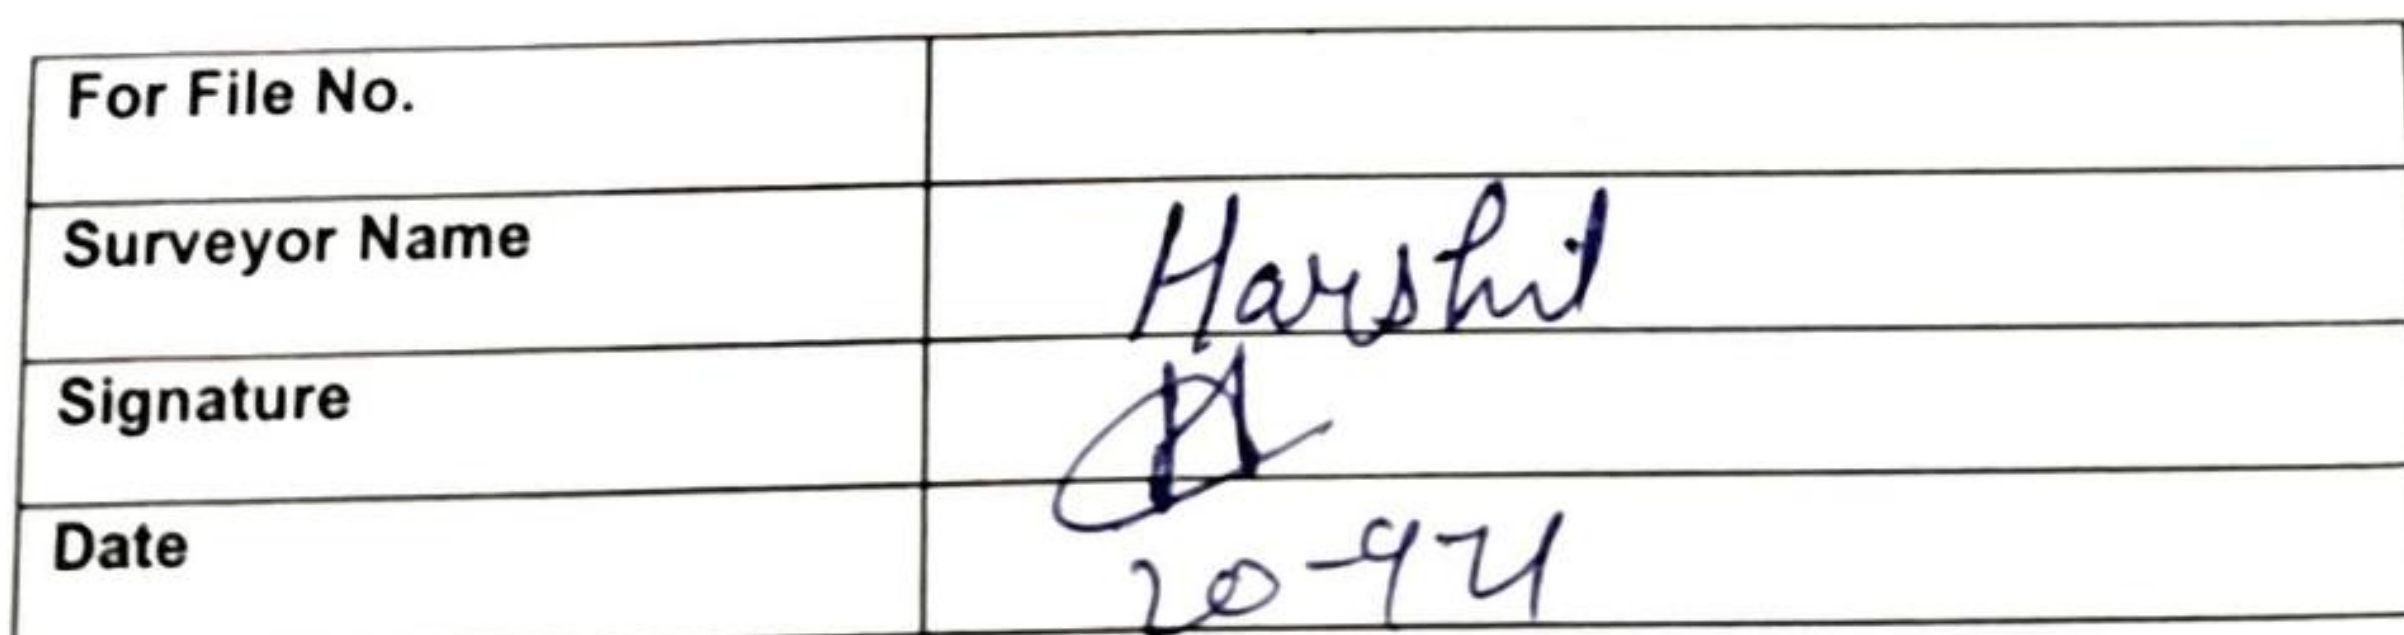 For File No.
Surveyor Name Harshit
Signature
Date